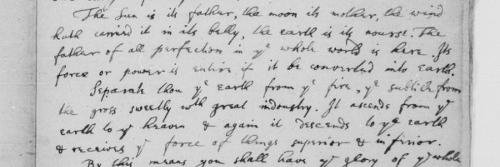 The Sun is its father, the moon its mother, the wind
hath carried it in its belly, the earth is its nourse. The
father of all perfection in yᵉ whole world is here. Its
force or power is entire if it be converted into earth.
Separate thou yᵉ earth from yᵉ fire, yᵉ subtile from
the gross sweetly wth great indoustry. It ascends from yᵉ
earth to yᵉ heaven & again it descends to yᵉ earth
& receives yᵉ force of things superior & inferior.
By this means you shall have yᵉ glory of yᵉ whole